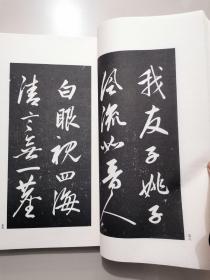 我友子姚子
風流如晉人
白眼視四海
清言無一塵